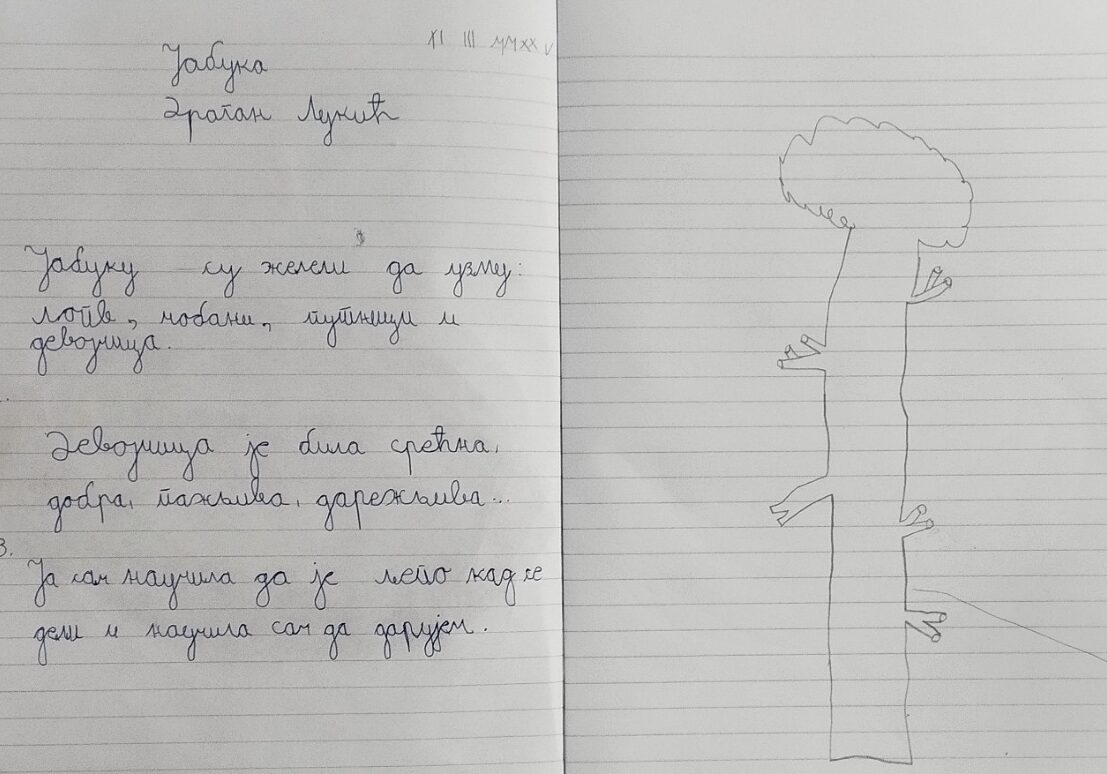 XI III MMXXV
Јабука
Драган Лукић
Јабуку су желели да узму:
ловв, чобани, путници и
девојчица.
Девојчица је била срећна,
добра, пажљива, дарежљива...
3.
Ја сам научила да је лепо кад се
дели и научила сам да дарујем.